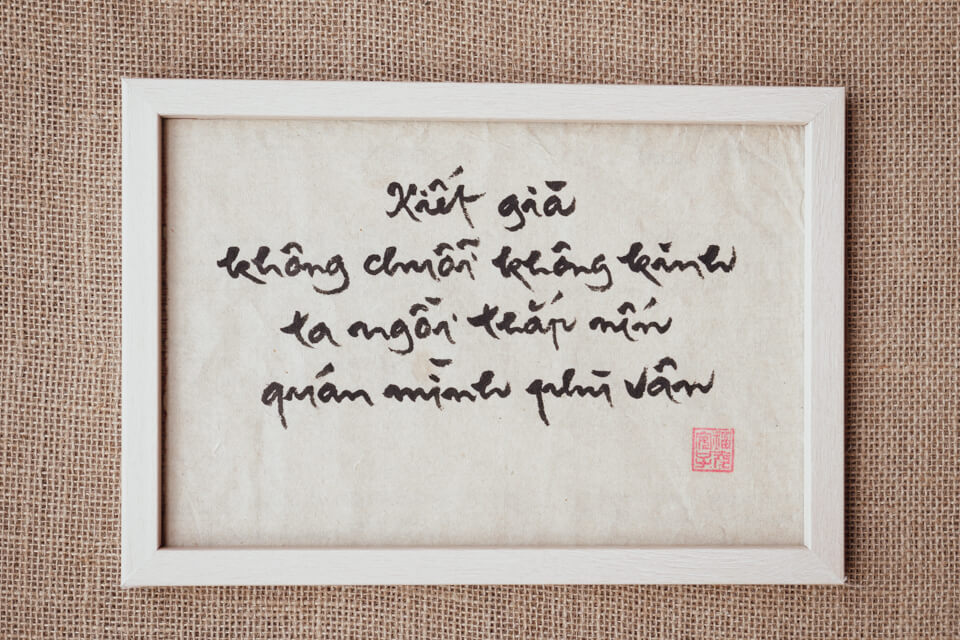 Kiết già
không chuỗi không kinh
ta ngồi thắp nến
quán mình phù vân